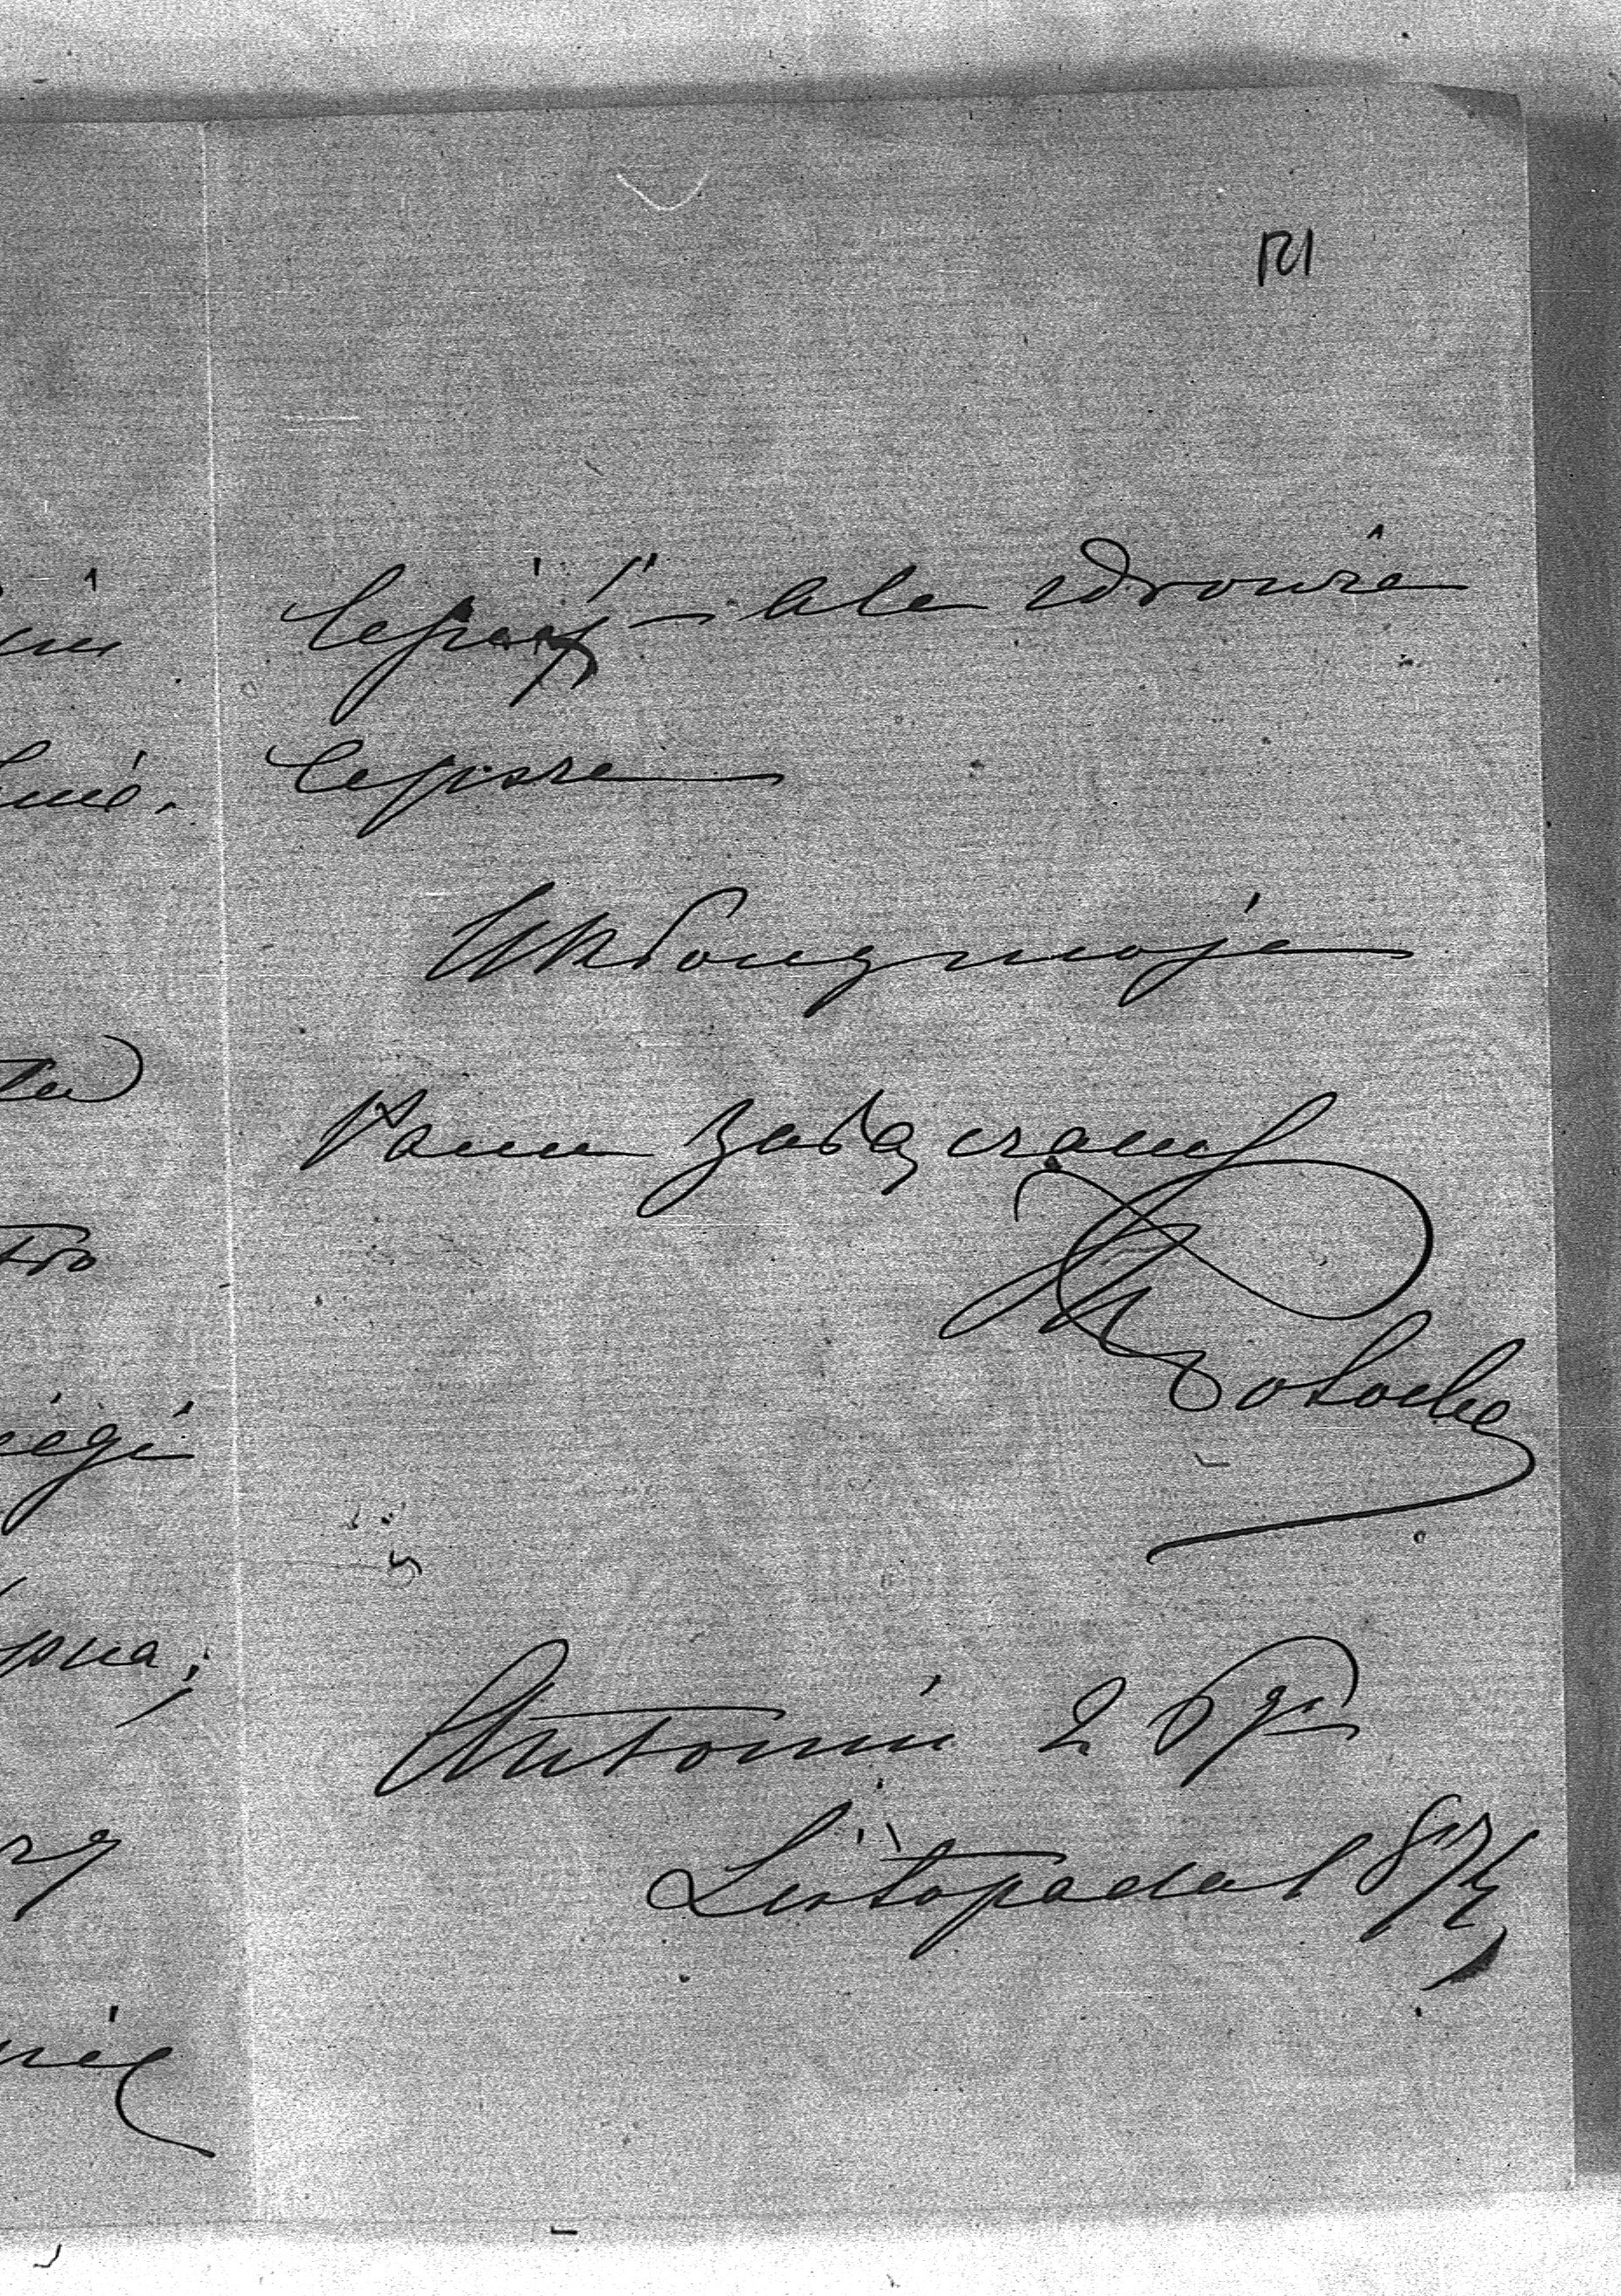 121
lepiéj – ale zdrowie
lepsze
Ukłony moje
Panu załączam
Potocka
Antonin 26go
Listopada 187